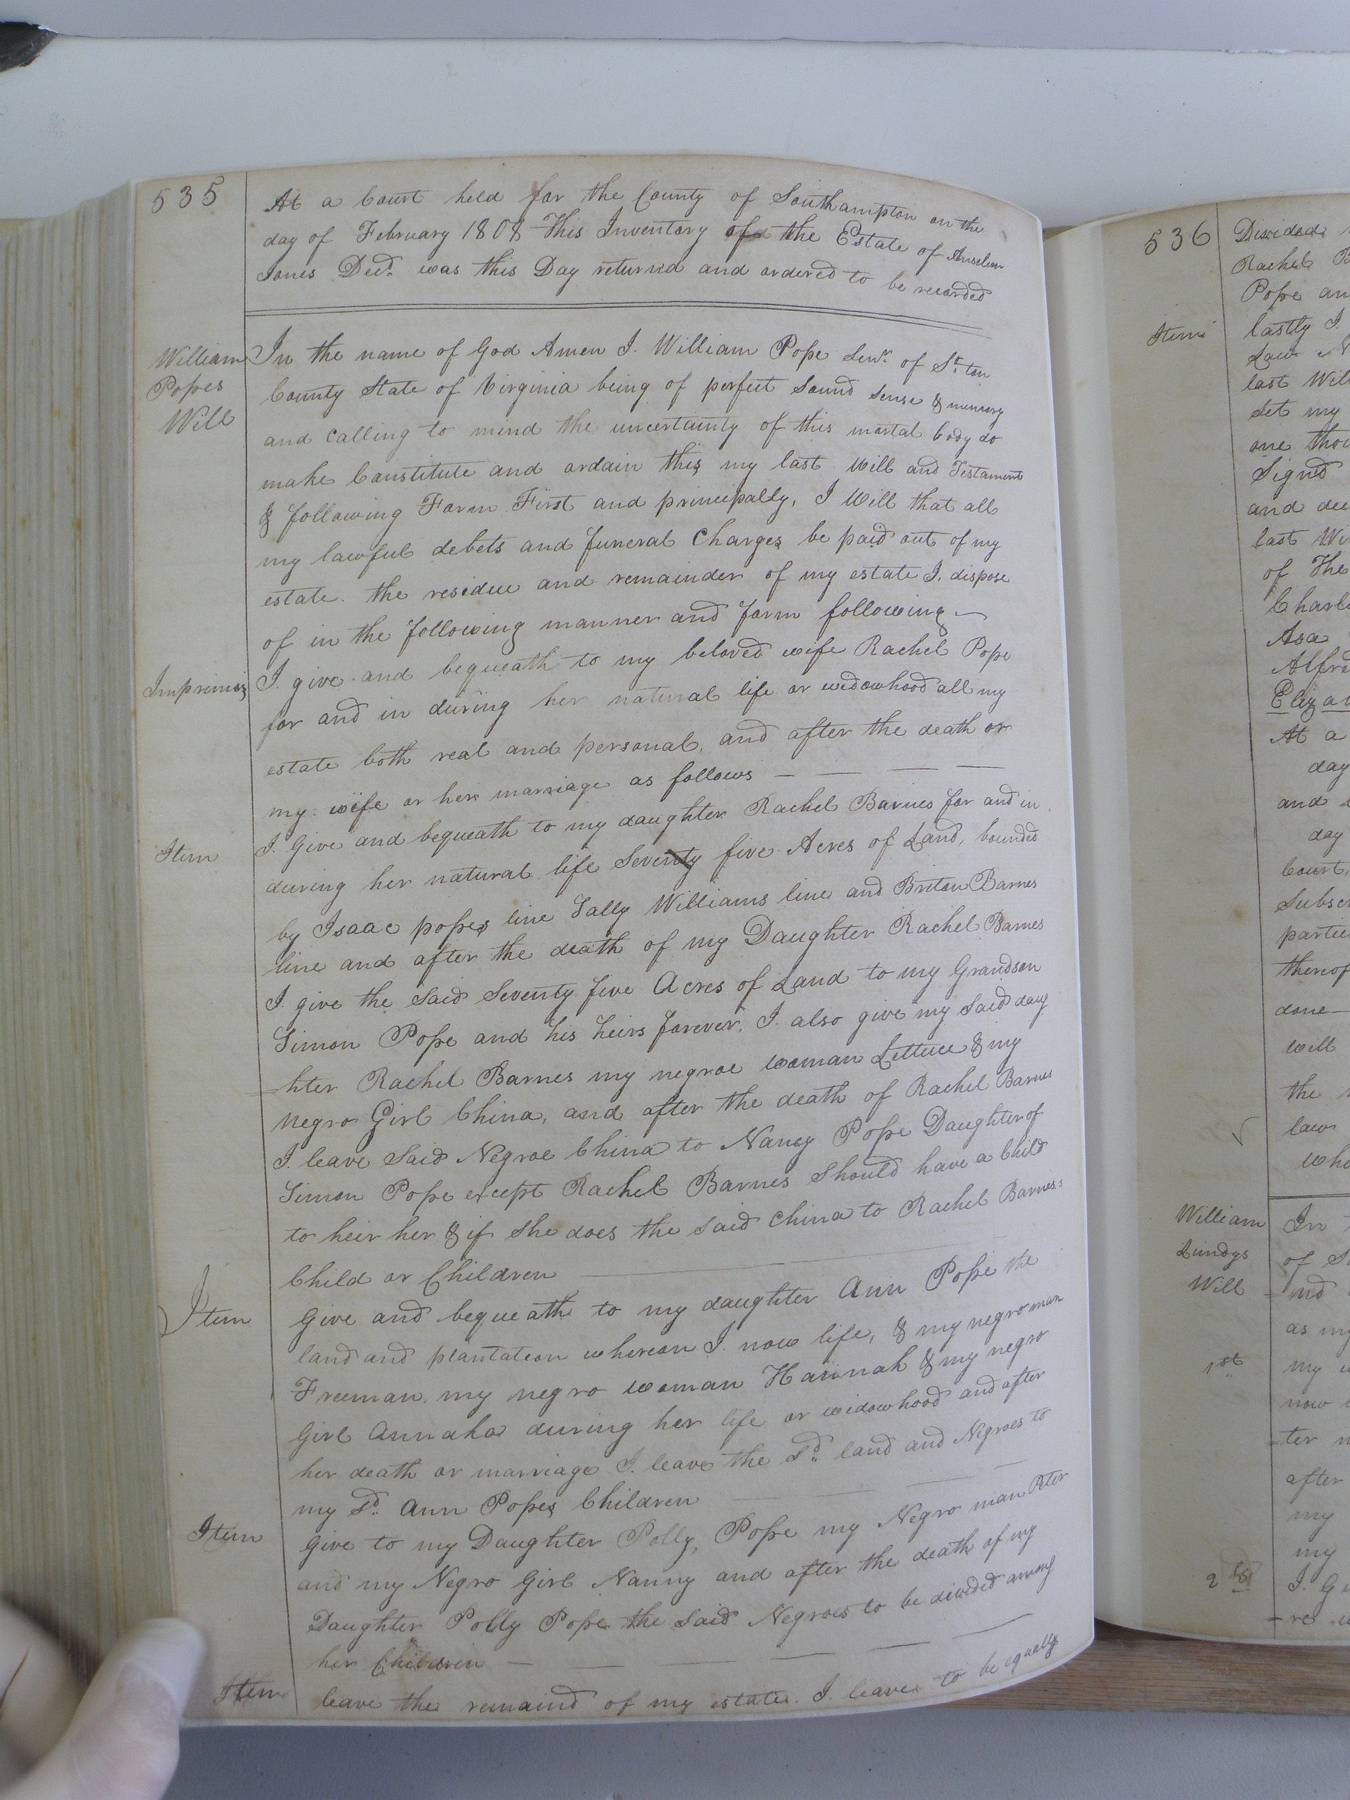 535
At a Court held for the County of Southampton on the
day of February 1808 This Inventory of the Estate of Anselem
Jones Decd. was this Day returned and ordered to be recorded
William
Popes
Will
In the name of God Amen I. William Pope Senr. of St.ton
County State of Virginia being of perfect Sound Sense & memory
and calling to mind the uncertainty of this mortal body do
make Constitute and ordain this my last Will and Testament
& following Form First and principally, I Will that all
my lawful debets and funeral Charges be paid out of my
estate. the residue and remainder of my estate I. dispose
of in the following manner and form following
Imprimis
I. give and bequeath to my beloved wife Rachel Pope
for and in during her natural life or widowhood all my
estate both real and personal, and after the death or
my wife or her marriage as follows — — — —
Item
I. Give and bequeath to my daughter Rachel Barnes for and in
during her natural life Seventy five Acres of Land, bounded
by Isaac popes line Sally Williams line and Briton Barnes
line and after the death of my Daughter Rachel Barnes
I. give the Said Seventy five Acres of Land to my Grandson
Simon Pope and his heirs forever. I. also give my Said daug
hter Rachel Barnes my negroe woman Lettuce & my
negro Girl China, and after the death of Rachel Barnes
I. leave Said Negroe China to Nancy Pope Daughter of
Simon Pope except Rachel Barnes Should have a Child
to heir her & if She does the Said China to Rachel Barness
Child or Children
Item
Give and bequeath to my daughter Ann Pope the
land and plantation whereon I. now life, & my negro man
Freeman, my negro woman Hannah & my negro
Girl Annaka during her life or widowhood and after
her death or marriage I. leave the Sd. land and Negroes to
my Sd. Ann Popes Children
Item
Give to my Daughter Polly, Pope my Negro man Peter
and my Negro Girl Nanny and after the death of my
Daughter Polly Pope the Said Negroes to be divided among
her Children — — — — —
Item
leave the remaind of my estate. I. leave to be equally
536
Divided
Rachel B
Pope an
Item
lastly I.
Law
last Will
Set my
one thou
Signd
and de
last Wi
of The
Charl
Asa
Alfr
Eliz
At a
day
and
day
Court,
Subsc
partic
thereof
done
will
the
law
who
William
Lundys
Will
In
of S
and
as my
1st
my
now
ter
after
my
my
2
I. G
re